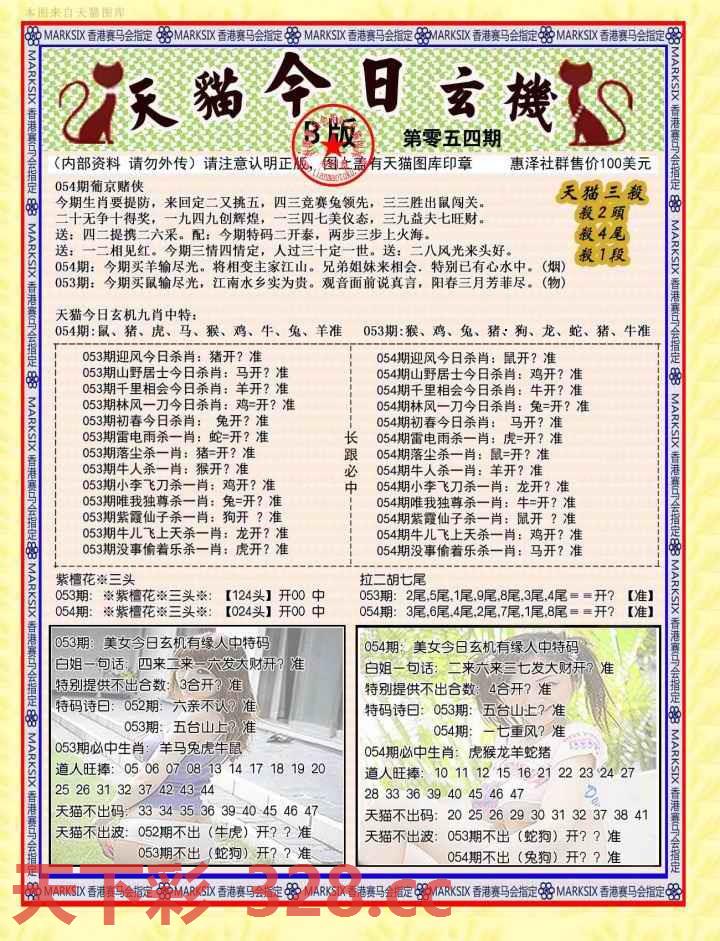 本图来自天猫图库
MARKSIX 香港赛马会指定 MARKSIX 香港赛马会指定 MARKSIX 香港赛马会指定 MARKSIX 香港赛马会指定 MARKSIX 香港赛马会指定
天貓今日玄機
B版
第零五四期
(内部资料 请勿外传) 请注意认明正版，图上盖有天猫图库印章 惠泽社群售价100美元
054期葡京赌侠
今期生肖要提防，来回定二又挑五，四三竞赛兔领先，三三胜出鼠闯关。
二十无争十得奖，一九四九创辉煌，一三四七美仪态，三九益夫七旺财。
送：四二提携二六采。配：今期特码二开泰，两步三步上火海。
送：一二相见红。今期三情四情定，人过三十定一世。送：二八风光来头好。
054期：今期买羊输尽光。将相变主家江山。兄弟姐妹来相会．特别已有心水中。(烟)
053期：今期买鼠输尽光，江南水乡实为贵。观音面前说真言，阳春三月芳菲尽。(物)
天猫三殺
殺2頭
殺4尾
殺1段
天猫今日玄机九肖中特：
054期:鼠、猪、虎、马、猴、鸡、牛、兔、羊准 053期:猴、鸡、兔、猪、狗、龙、蛇、猪、牛准
053期迎风今日杀肖：猪开？准
053期山野居士今日杀肖：马开？准
053期千里相会今日杀肖：羊开？准
053期林风一刀今日杀肖：鸡=开？准
053期初春今日杀肖： 兔开？准
053期雷电雨杀一肖：蛇=开？准
053期落尘杀一肖：猪=开？准
053期牛人杀一肖：猴开？准
053期小李飞刀杀一肖：鸡开？准
053期唯我独尊杀一肖：兔=开？准
053期紫霞仙子杀一肖：狗开 ？准
053期牛儿飞上天杀一肖：龙开？准
053期没事偷着乐杀一肖：虎开？准
长跟必中
054期迎风今日杀肖：鼠开？准
054期山野居士今日杀肖：鸡开？准
054期千里相会今日杀肖：牛开？准
054期林风一刀今日杀肖：兔=开？准
054期初春今日杀肖： 马开？准
054期雷电雨杀一肖：虎=开？准
054期落尘杀一肖：鼠=开？准
054期牛人杀一肖：羊开？准
054期小李飞刀杀一肖：龙开？准
054期唯我独尊杀一肖：牛=开？准
054期紫霞仙子杀一肖：鼠开 ？准
054期牛儿飞上天杀一肖：鸡开？准
054期没事偷着乐杀一肖：马开？准
紫檀花※三头
053期：※紫檀花※三头※：【124头】开00 中
054期：※紫檀花※三头※：【024头】开00 中
拉二胡七尾
053期：2尾,5尾,1尾,9尾,8尾,3尾,4尾＝＝开？【准】
054期：3尾,6尾,4尾,2尾,7尾,1尾,8尾＝＝开？【准】
053期：美女今日玄机有缘人中特码
白姐一句话：四来二来一六发大财开？准
特别提供不出合数：3合开？准
特码诗曰：052期：六亲不认？准
053期：五台山上？准
053期必中生肖：羊马兔虎牛鼠
道人旺捧：05 06 07 08 13 14 17 18 19 20
25 26 31 32 37 42 43 44
天猫不出码：33 34 35 36 39 40 45 46 47
天猫不出波：052期不出（牛虎）开？？准
053期不出（蛇狗）开？？准
054期：美女今日玄机有缘人中特码
白姐一句话：二来六来三七发大财开？准
特别提供不出合数：4合开？准
特码诗曰：053期：五台山上？准
054期：一七重风？准
054期必中生肖：虎猴龙羊蛇猪
道人旺捧：10 11 12 15 16 21 22 23 24 27
28 33 36 39 40 45 46 47
天猫不出码：20 25 26 29 30 31 32 37 38 41
天猫不出波：053期不出（蛇狗）开？？准
054期不出（兔狗）开？？准
天下彩 328.cc
MARKSIX 香港赛马会指定 MARKSIX 香港赛马会指定 MARKSIX 香港赛马会指定 MARKSIX 香港赛马会指定 MARKSIX 香港赛马会指定